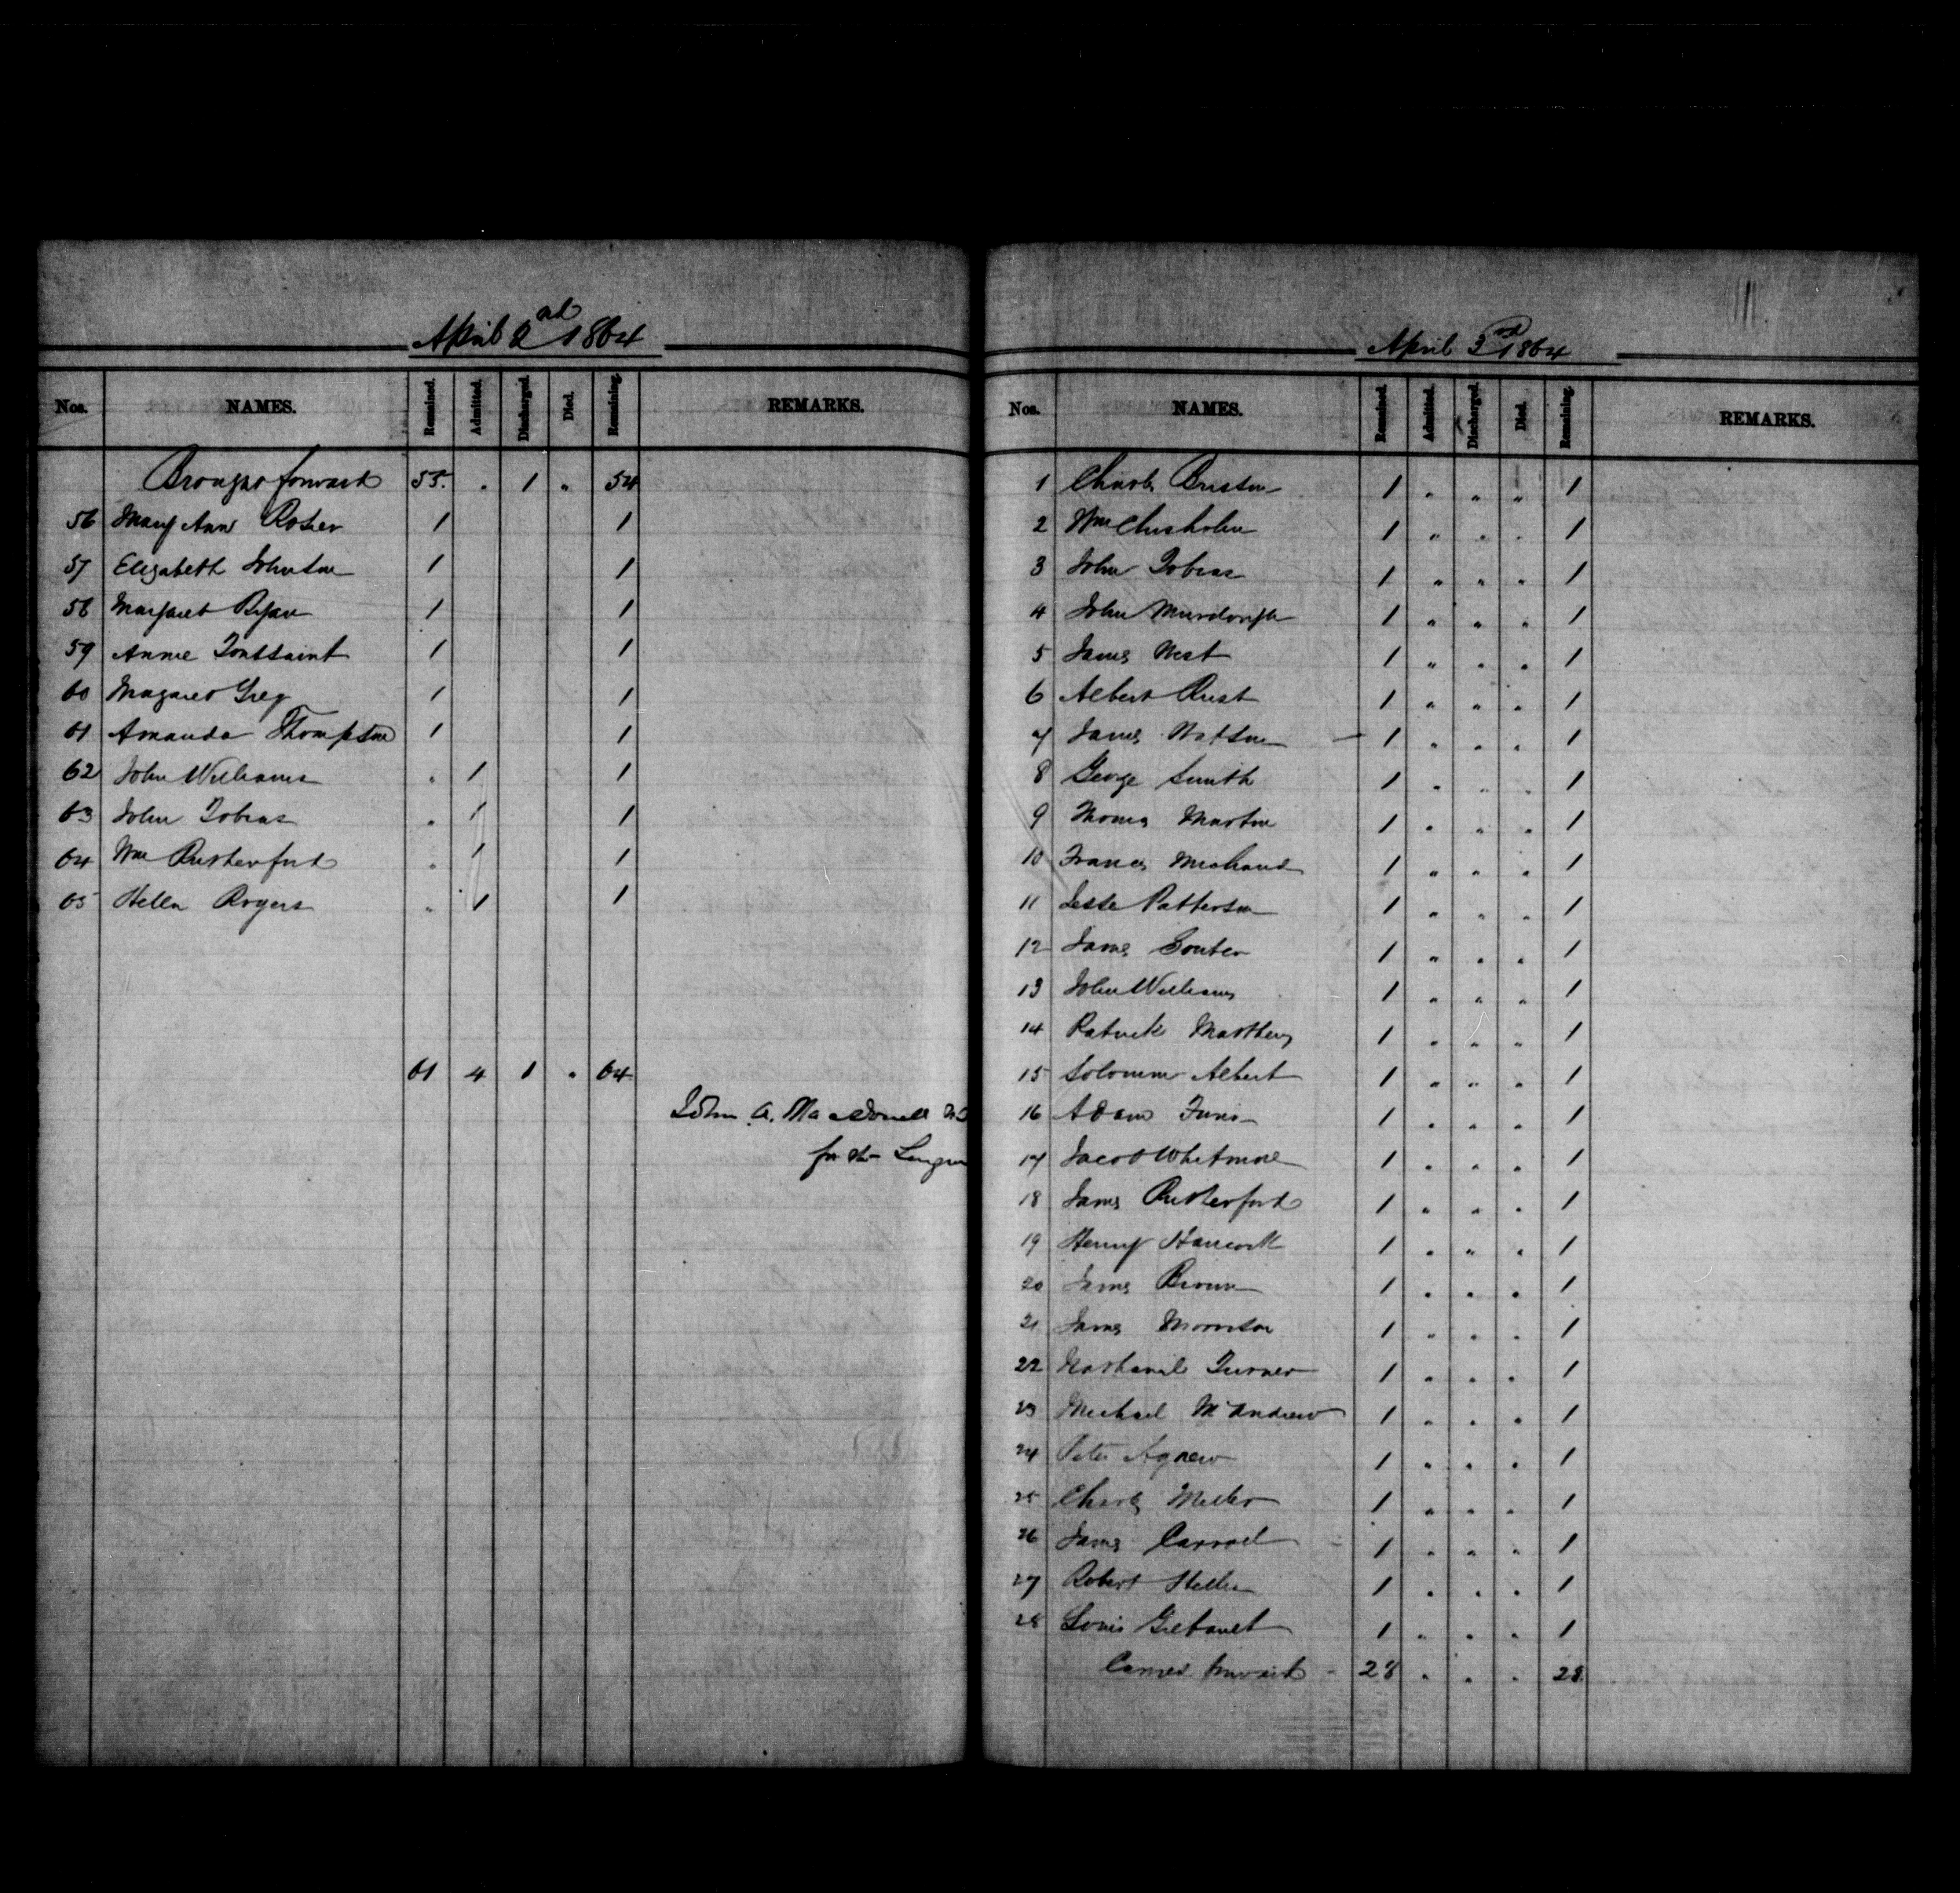 April 2nd 1864
Nos. NAMES. Remained. Admitted. Discharged. Died. Remaining. REMARKS.
Brought forward 55. " 1 " 54
56 Mary Ann Rosier 1 1
57 Elizabeth Johnson 1 1
58 Margaret Ryan 1 1
59 Annie Toussaint 1 1
60 Magaret Greg 1 1
61 Amanda Thompson 1 1
62 John Williams " 1 1
63 John Tobias " 1 1
64 Wm Rutherford " 1 1
65 Hellen Rogers " 1 1
61 4 1 " 64
John A. Macdonell
for the
April 3rd 1864
Nos. NAMES. Remained. Admitted. Discharged. Died. Remaining. REMARKS.
1 Charles 1 " " " 1
2 Wm Chisholm 1 " " " 1
3 John Tobias 1 " " " 1
4 John Murdough 1 " " " 1
5 James West 1 " " " 1
6 Albert Rust 1 " " " 1
7 James Watson 1 " " " 1
8 George Smith 1 " " " 1
9 Thomas Martin 1 " " " 1
10 Francis Michaud 1 " " " 1
11 Jesse Patterson 1 " " " 1
12 James Souter 1 " " " 1
13 John Williams 1 " " " 1
14 Patrick Matthews 1 " " " 1
15 Solomon Albert 1 " " " 1
16 Adam 1 " " " 1
17 Jacob Whitmore 1 " " " 1
18 James Rutherford 1 " " " 1
19 Henry Hancock 1 " " " 1
20 James Brown 1 " " " 1
21 James Morrison 1 " " " 1
22 Nathaniel Turner 1 " " " 1
23 Michael McAndrew 1 " " " 1
24 Peter Agnew 1 " " " 1
25 Charles Miller 1 " " " 1
26 James Carroll 1 " " " 1
27 Robert 1 " " " 1
28 Louis 1 " " " 1
Carried forward 28 " " " 28